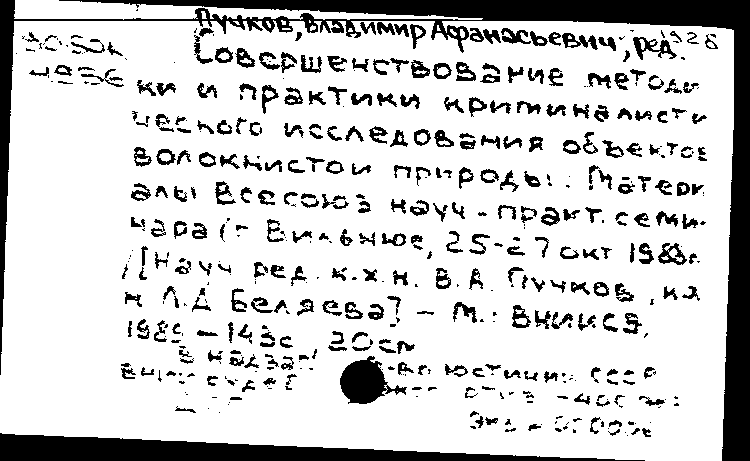 Пучков, Владимир Афанасьевич, ред. 1928
Совершенствование методи
ки и практики криминалисти
ческого исследования объектов
волокнистой природы: Матери
алы Всесоюз науч.-практ. семи-
нара (г Вильнюс, 25-27 окт 1983г.
/[Науч ред. к.х.н. В.А. Пучков, к.х
н Л.Д Беляева] – М.: ВНИИСЭ,
198 – 143с 20см
В надзаг юстиции СССР
400